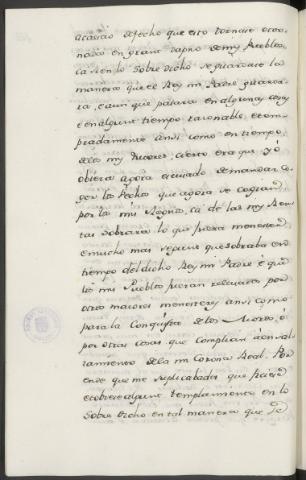 ocasion de fecho que esto tornase ocasio
nado en grand dapno de my Pueblos,
ca si en lo sobre dicho se guardase la
manera que el Rey mi Padre guarda
ra, e aun que pasara en algunas cosas
e en algunt tiempo rasonable, e tem
pradamente ansi como en tiempo
delas my cierto era que yo
obiera agora escusado demandar co
ger los Pechos que agora se cogian
por los mis Regnos, ca de las my Ren
tas sobrara lo que fuera menester
e mucho mas segunt que sobraba en
tiempo del dicho Rey mi Padre è que
los mis Pueblos fueran relevados por
otro maiores menesteres ansi como
para la Conquista de los Moros, ò
por otras cosas que complian à ensal
zamiento dela mi Corona Real. Por
ende que me suplicabades que pusiese
e obiese algunt templamiento en lo
sobre dicho en tal manera que se